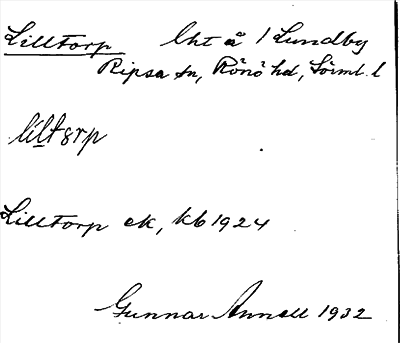 Lilltorp lht å 1 Lundby
Ripsa sn, Rönö hd, Sörml. l
lil̲tɜrp
Lilltorp ek, kb 1924
Gunnar Annell 1932